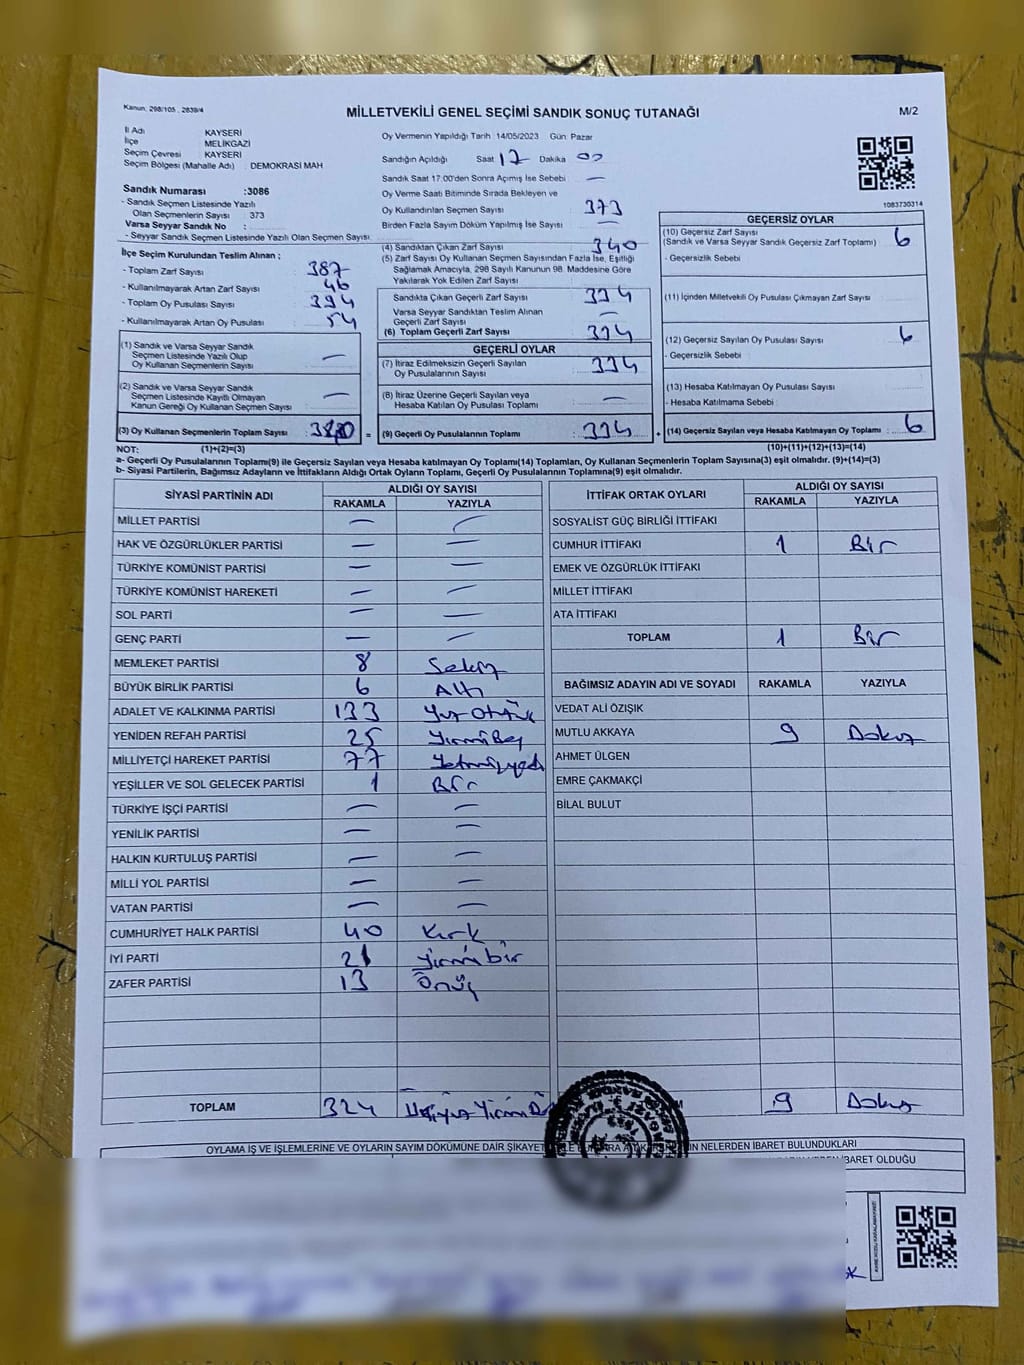 Kanun, 298/105 , 2839/4
MİLLETVEKİLİ GENEL SEÇİMİ SANDIK SONUÇ TUTANAĞI
M/2
İl Adı KAYSERİ
İlçe MELİKGAZİ
Seçim Çevresi KAYSERİ
Seçim Bölgesi (Mahalle Adı) : DEMOKRASİ MAH
Sandık Numarası :3086
- Sandık Seçmen Listesinde Yazılı
Olan Seçmenlerin Sayısı : 373
Varsa Seyyar Sandık No :
- Seyyar Sandık Seçmen Listesinde Yazılı Olan Seçmen Sayısı
Oy Vermenin Yapıldığı Tarih :14/05/2023 Gün: Pazar
Sandığın Açıldığı Saat 17 Dakika 00
Sandık Saat 17:00'den Sonra Açımış İse Sebebi : —
Oy Verme Saati Bitiminde Sırada Bekleyen ve
Oy Kullandırılan Seçmen Sayısı : 373
Birden Fazla Sayım Döküm Yapılmış İse Sayısı : —
1083730314
İlçe Seçim Kurulundan Teslim Alınan :
- Toplam Zarf Sayısı : 387
- Kullanılmayarak Artan Zarf Sayısı : 46
- Toplam Oy Pusulası Sayısı : 394
- Kullanılmayarak Artan Oy Pusulası : 54
(1) Sandık ve Varsa Seyyar Sandık
Seçmen Listesinde Yazılı Olup
Oy Kullanan Seçmenlerin Sayısı : —
(2) Sandık ve Varsa Seyyar Sandık
Seçmen Listesinde Kayıtlı Olmayan
Kanun Gereği Oy Kullanan Seçmen Sayısı : —
(3) Oy Kullanan Seçmenlerin Toplam Sayısı :
(4) Sandıktan Çıkan Zarf Sayısı : 340
(5) Zarf Sayısı Oy Kullanan Seçmen Sayısından Fazla İse, Eşitliği
Sağlamak Amacıyla, 298 Sayılı Kanunun 98. Maddesine Göre
Yakılarak Yok Edilen Zarf Sayısı :
Sandıkta Çıkan Geçerli Zarf Sayısı : 334
Varsa Seyyar Sandıktan Teslim Alınan
Geçerli Zarf Sayısı : —
(6) Toplam Geçerli Zarf Sayısı : 334
GEÇERLİ OYLAR
(7) İtiraz Edilmeksizin Geçerli Sayılan
Oy Pusulalarının Sayısı : 334
(8) İtiraz Üzerine Geçerli Sayılan veya
Hesaba Katılan Oy Pusulası Toplamı : —
= (9) Geçerli Oy Pusulalarının Toplamı : 334
GEÇERSİZ OYLAR
(10) Geçersiz Zarf Sayısı :
(Sandık ve Varsa Seyyar Sandık Geçersiz Zarf Toplamı) 6
- Geçersizlik Sebebi :
(11) İçinden Milletvekili Oy Pusulası Çıkmayan Zarf Sayısı :
(12) Geçersiz Sayılan Oy Pusulası Sayısı : 6
- Geçersizlik Sebebi :
(13) Hesaba Katılmayan Oy Pusulası Sayısı :
- Hesaba Katılmama Sebebi :
+ (14) Geçersiz Sayılan veya Hesaba Katılmayan Oy Toplamı : 6
NOT: (1)+(2)=(3) (10)+(11)+(12)+(13)=(14)
a- Geçerli Oy Pusulalarının Toplamı(9) ile Geçersiz Sayılan veya Hesaba katılmayan Oy Toplamı(14) Toplamları, Oy Kullanan Seçmenlerin Toplam Sayısına(3) eşit olmalıdır. (9)+(14)=(3)
b- Siyasi Partilerin, Bağımsız Adayların ve İttifakların Aldığı Ortak Oyların Toplamı, Geçerli Oy Pusulalarının Toplamına(9) eşit olmalıdır.
SİYASİ PARTİNİN ADI ALDIĞI OY SAYISI
RAKAMLA YAZIYLA
MİLLET PARTİSİ — —
HAK VE ÖZGÜRLÜKLER PARTİSİ — —
TÜRKİYE KOMÜNİST PARTİSİ — —
TÜRKİYE KOMÜNİST HAREKETİ — —
SOL PARTİ — —
GENÇ PARTİ — —
MEMLEKET PARTİSİ 8 Sekiz
BÜYÜK BİRLİK PARTİSİ 6 Altı
ADALET VE KALKINMA PARTİSİ 133 Yüz Otuzüç
YENİDEN REFAH PARTİSİ 25 Yirmi Beş
MİLLİYETÇİ HAREKET PARTİSİ 77 Yetmişyedi
YEŞİLLER VE SOL GELECEK PARTİSİ 1 Bir
TÜRKİYE İŞÇİ PARTİSİ — —
YENİLİK PARTİSİ — —
HALKIN KURTULUŞ PARTİSİ — —
MİLLİ YOL PARTİSİ — —
VATAN PARTİSİ — —
CUMHURİYET HALK PARTİSİ 40 Kırk
İYİ PARTİ 21 Yirmi bir
ZAFER PARTİSİ 13 Onüç
TOPLAM 324 Üçyüz Yirmi
İTTİFAK ORTAK OYLARI ALDIĞI OY SAYISI
RAKAMLA YAZIYLA
SOSYALİST GÜÇ BİRLİĞİ İTTİFAKI
CUMHUR İTTİFAKI 1 Bir
EMEK VE ÖZGÜRLÜK İTTİFAKI
MİLLET İTTİFAKI
ATA İTTİFAKI
TOPLAM 1 Bir
BAĞIMSIZ ADAYIN ADI VE SOYADI RAKAMLA YAZIYLA
VEDAT ALİ ÖZIŞIK
MUTLU AKKAYA 9 Dokuz
AHMET ÜLGEN
EMRE ÇAKMAKÇİ
BİLAL BULUT
9 Dokuz
OYLAMA İŞ VE İŞLEMLERİNE VE OYLARIN SAYIM DÖKÜMÜNE DAİR ŞİKAYET NELERDEN İBARET BULUNDUKLARI
İBARET OLDUĞU